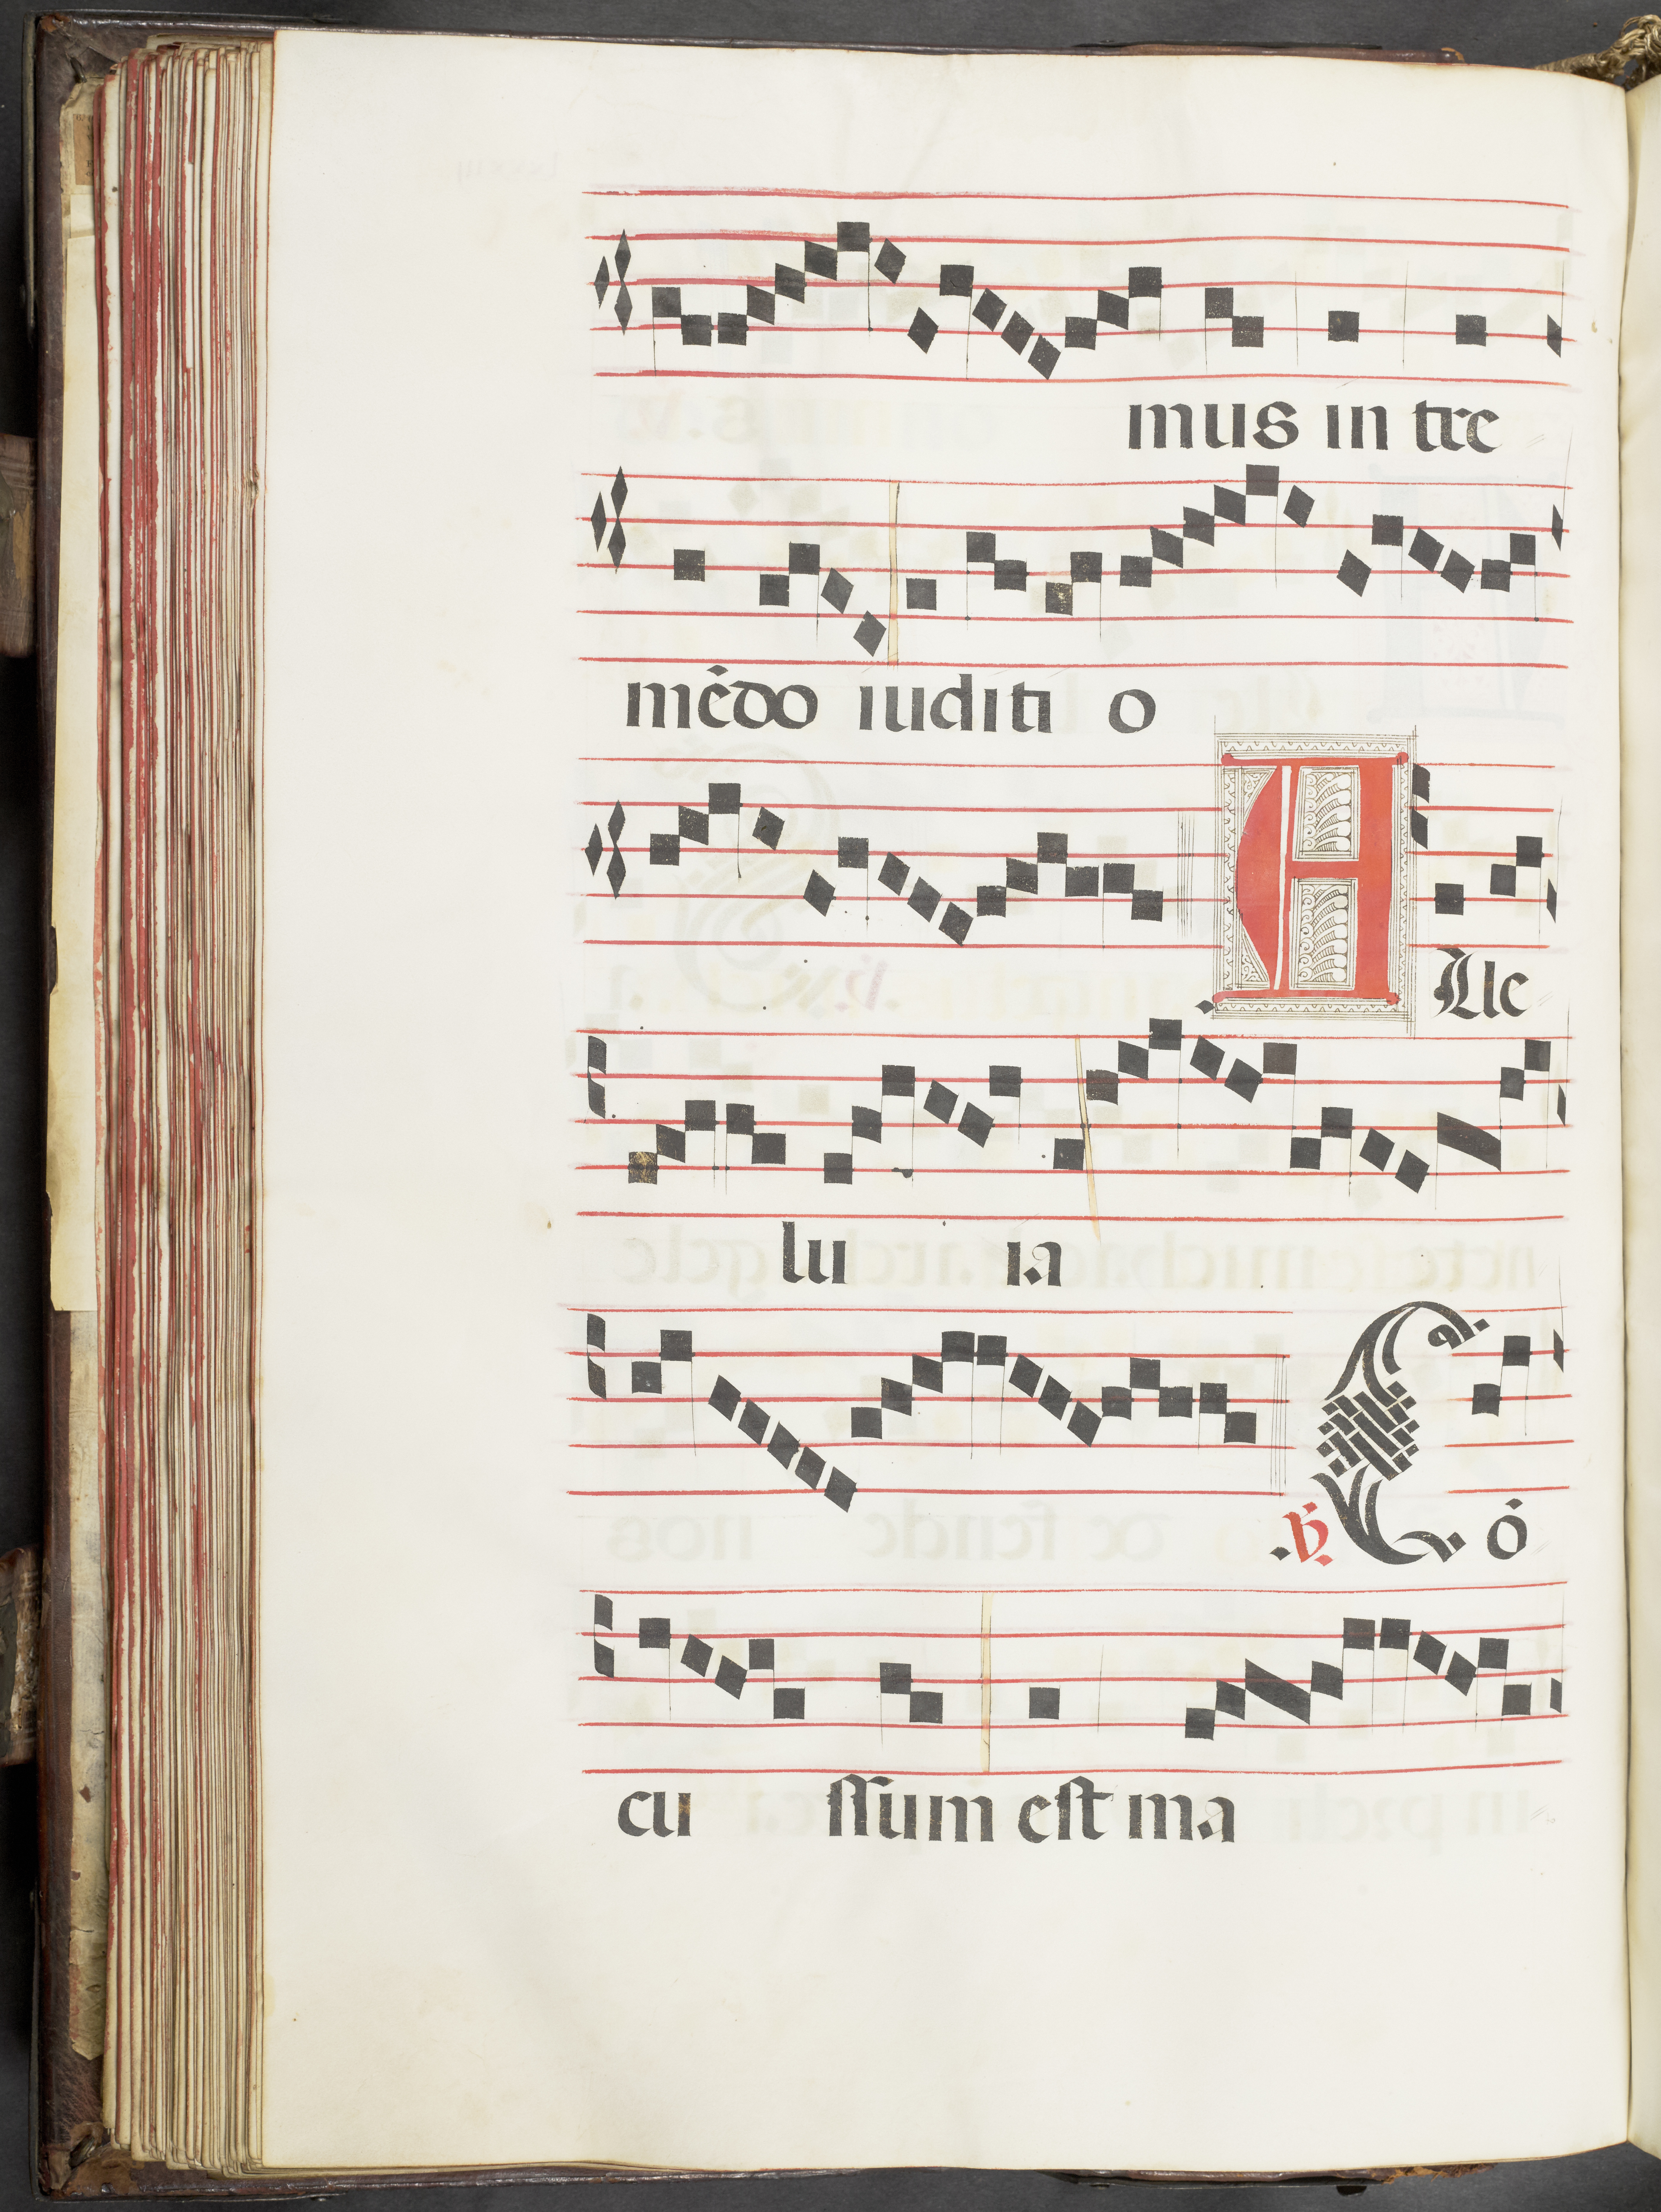 mus in tre
mẽdo iuditi o
A Lle
lu ia
.℟. C ó
cu ſſum eſt ma